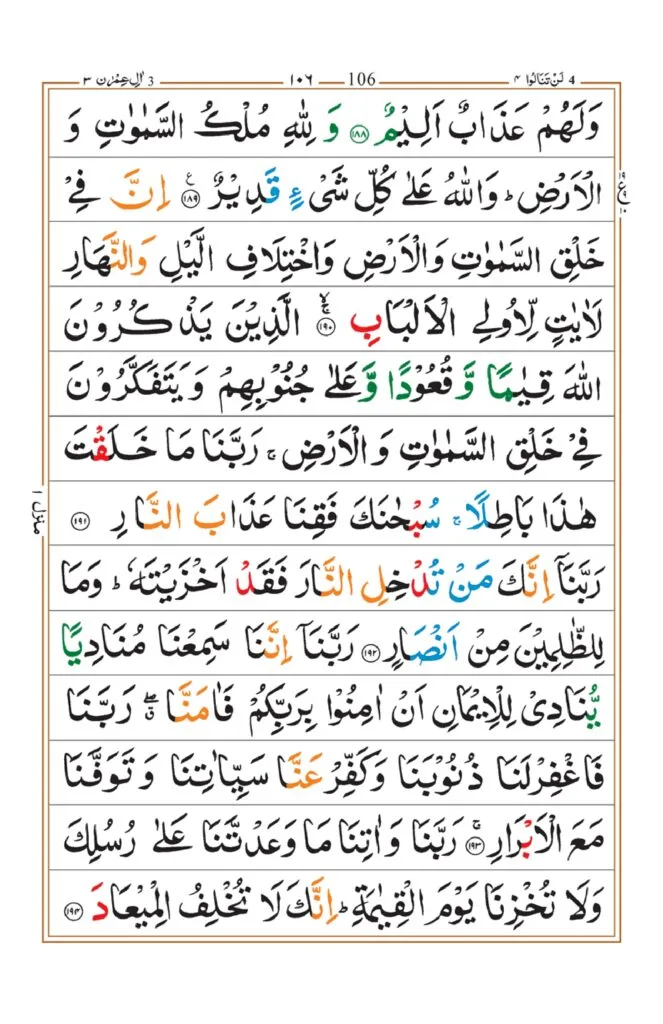 3 اٰلِ عِمْرٰن ٣ ١٠٦ 106 4 لَنْ تَنَالُوا ٤
وَلَهُمْ عَذَابٌ اَلِيْمٌ ﴿١٨٨﴾ وَ لِلّٰهِ مُلْكُ السَّمٰوٰتِ وَ
الْاَرْضِ ؕ وَاللّٰهُ عَلٰى كُلِّ شَىْءٍ قَدِيْرٌ ﴿١٨٩﴾ ع اِنَّ فِىْ
خَلْقِ السَّمٰوٰتِ وَالْاَرْضِ وَاخْتِلَافِ الَّيْلِ وَالنَّهَارِ
لَاٰيٰتٍ لِّاُولِى الْاَلْبَابِ ﴿١٩٠﴾ الَّذِيْنَ يَذْكُرُوْنَ
اللّٰهَ قِيٰمًا وَّ قُعُوْدًا وَّ عَلٰى جُنُوْبِهِمْ وَيَتَفَكَّرُوْنَ
فِىْ خَلْقِ السَّمٰوٰتِ وَالْاَرْضِ ۚ رَبَّنَا مَا خَلَقْتَ
هٰذَا بَاطِلًا ۚ سُبْحٰنَكَ فَقِنَا عَذَابَ النَّارِ ﴿١٩١﴾
رَبَّنَاۤ اِنَّكَ مَنْ تُدْخِلِ النَّارَ فَقَدْ اَخْزَيْتَهٗ ؕ وَمَا
لِلظّٰلِمِيْنَ مِنْ اَنْصَارٍ ﴿١٩٢﴾ رَبَّنَاۤ اِنَّنَا سَمِعْنَا مُنَادِيًا
يُّنَادِىْ لِلْاِيْمَانِ اَنْ اٰمِنُوْا بِرَبِّكُمْ فَاٰمَنَّا ۖ رَبَّنَا
فَاغْفِرْ لَنَا ذُنُوْبَنَا وَكَفِّرْ عَنَّا سَيِّاٰتِنَا وَتَوَفَّنَا
مَعَ الْاَبْرَارِ ﴿١٩٣﴾ ۚ رَبَّنَا وَاٰتِنَا مَا وَعَدْتَّنَا عَلٰى رُسُلِكَ
وَلَا تُخْزِنَا يَوْمَ الْقِيٰمَةِ ؕ اِنَّكَ لَا تُخْلِفُ الْمِيْعَادَ ﴿١٩٤﴾
منزل ١